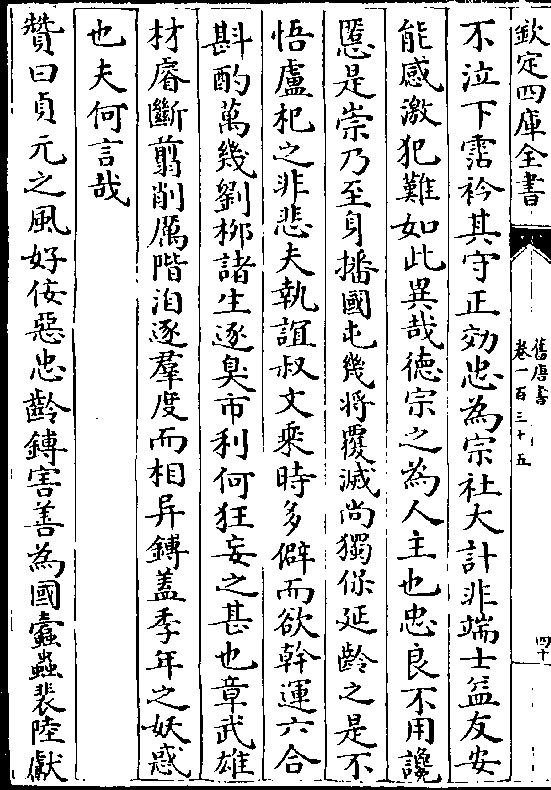 欽定四庫全書
舊唐書
卷一百三十五
四十
不泣下霑衿其守正効忠為宗社大計非端士益友安
能感激犯難如此異哉德宗之為人主也忠良不用讒
慝是崇乃至身播國屯幾將覆滅尚獨保延齡之是不
悟盧杞之非悲夫執誼叔文乗時多僻而欲幹運六合
斟酌萬幾劉柳諸生逐臭市利何狂妄之甚也章武雄
材睿斷翦削厲階洎逐羣度而相异鏄蓋季年之妖惑
也夫何言哉
贊曰貞元之風好佞惡忠齡鏄害善為國蠧蟲裴陸獻